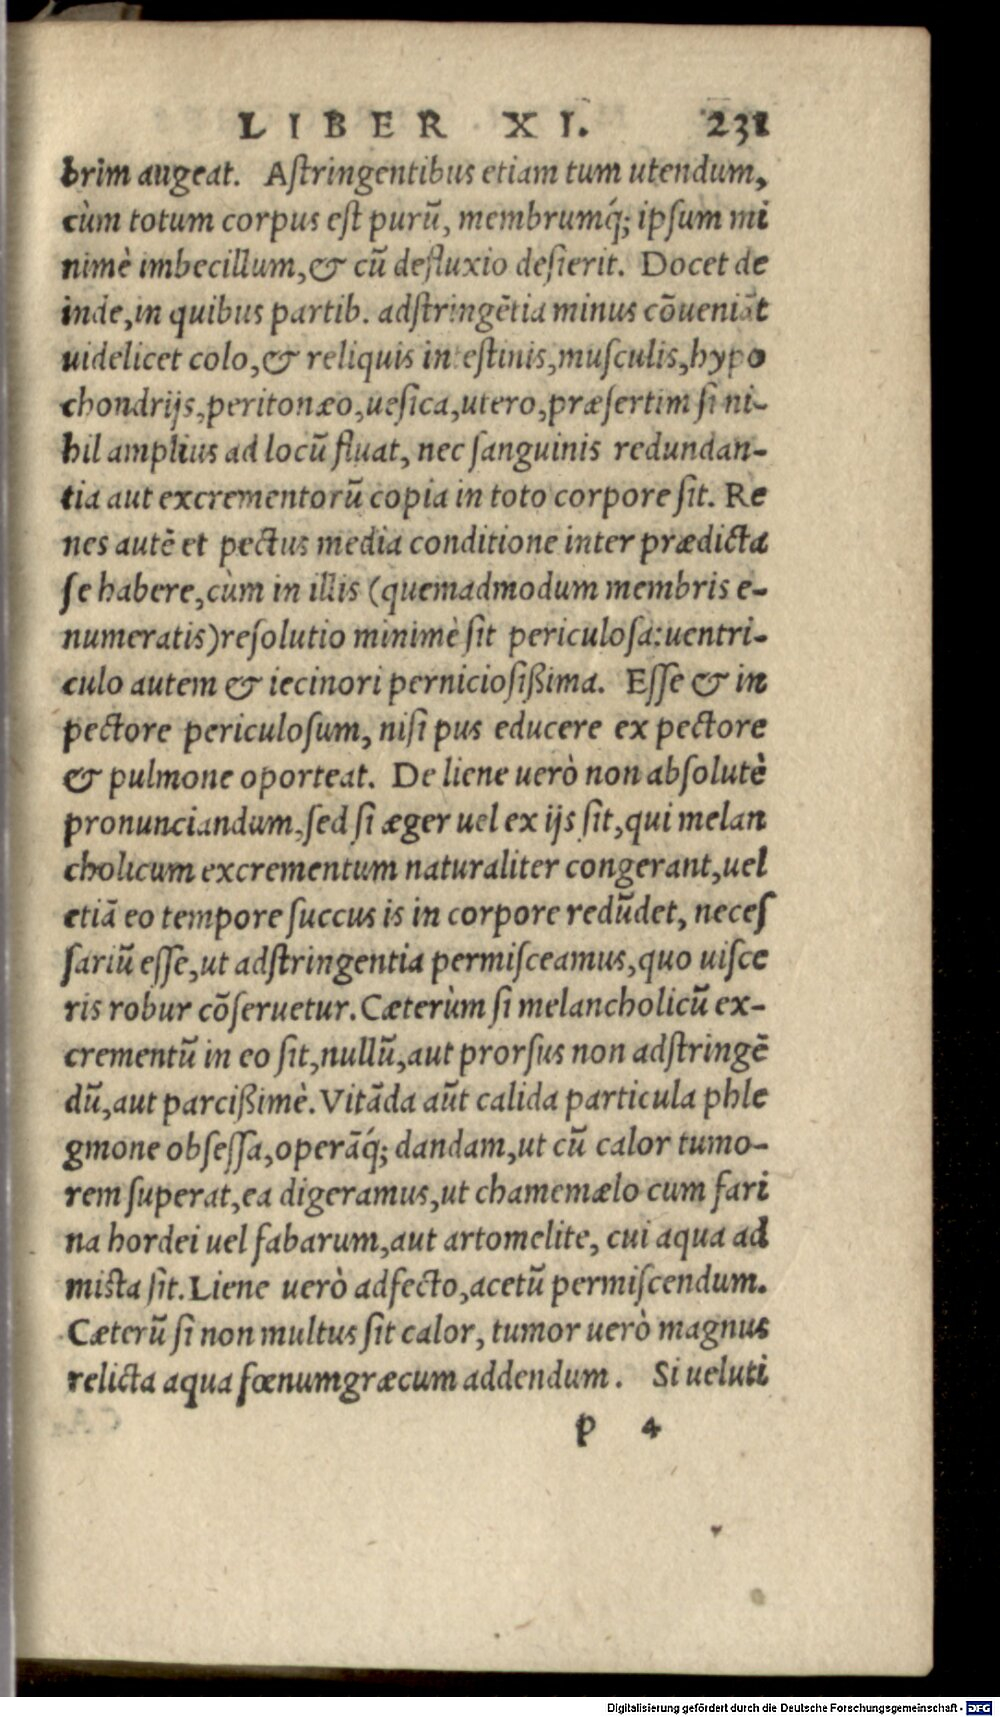 LIBER XI. 231
brim augeat. Astringentibus etiam tum utendum,
cùm totum corpus est purũ, membrumq́; ipsum mi
nimè imbecillum, & cũ defluxio desierit. Docet de
inde, in quibus partib. adstringẽtia minus cõueniãt
uidelicet colo, & reliquis intestinis, musculis, hypo
chondrijs, peritonæo, uesica, utero, præsertim si ni-
hil amplius ad locũ fluat, nec sanguinis redundan-
tia aut excrementorũ copia in toto corpore sit. Re
nes autẽ et pectus media conditione inter prædicta
se habere, cùm in illis (quemadmodum membris e-
numeratis) resolutio minimè sit periculosa: uentri-
culo autem & iecinori perniciosißima. Esse & in
pectore periculosum, nisi pus educere ex pectore
& pulmone oporteat. De liene uerò non absolutè
pronunciandum, sed si æger uel ex ijs sit, qui melan
cholicum excrementum naturaliter congerant, uel
etiã eo tempore succus is in corpore redũdet, neces
sariũ esse, ut adstringentia permisceamus, quo uisce
ris robur cõseruetur. Cæterùm si melancholicũ ex-
crementũ in eo sit, nullũ, aut prorsus non adstringẽ
dũ, aut parcißimè. Vitãda aũt calida particula phle
gmone obsessa, operãq́; dandam, ut cũ calor tumo-
rem superat, ea digeramus, ut chamemælo cum fari
na hordei uel fabarum, aut artomelite, cui aqua ad
mista sit. Liene uerò adfecto, acetũ permiscendum.
Cæterũ si non multus sit calor, tumor uerò magnus
relicta aqua fœnumgræcum addendum. Si ueluti
p 4
Digitalisierung gefördert durch die Deutsche Forschungsgemeinschaft - DFG